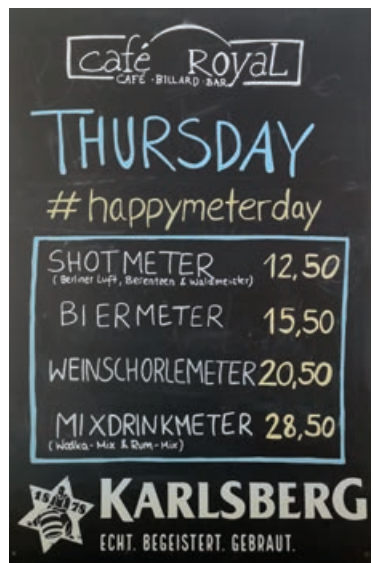 café Royal
CAFÉ · BILLARD · BAR
THURSDAY
#happymeterday
SHOTMETER 12,50
(Berliner Luft, Berentzen & Waldmeister)
BIERMETER 15,50
WEINSCHORLEMETER 20,50
MIXDRINKMETER 28,50
(Wodka-Mix & Rum-Mix)
18 78
KARLSBERG
ECHT. BEGEISTERT. GEBRAUT.